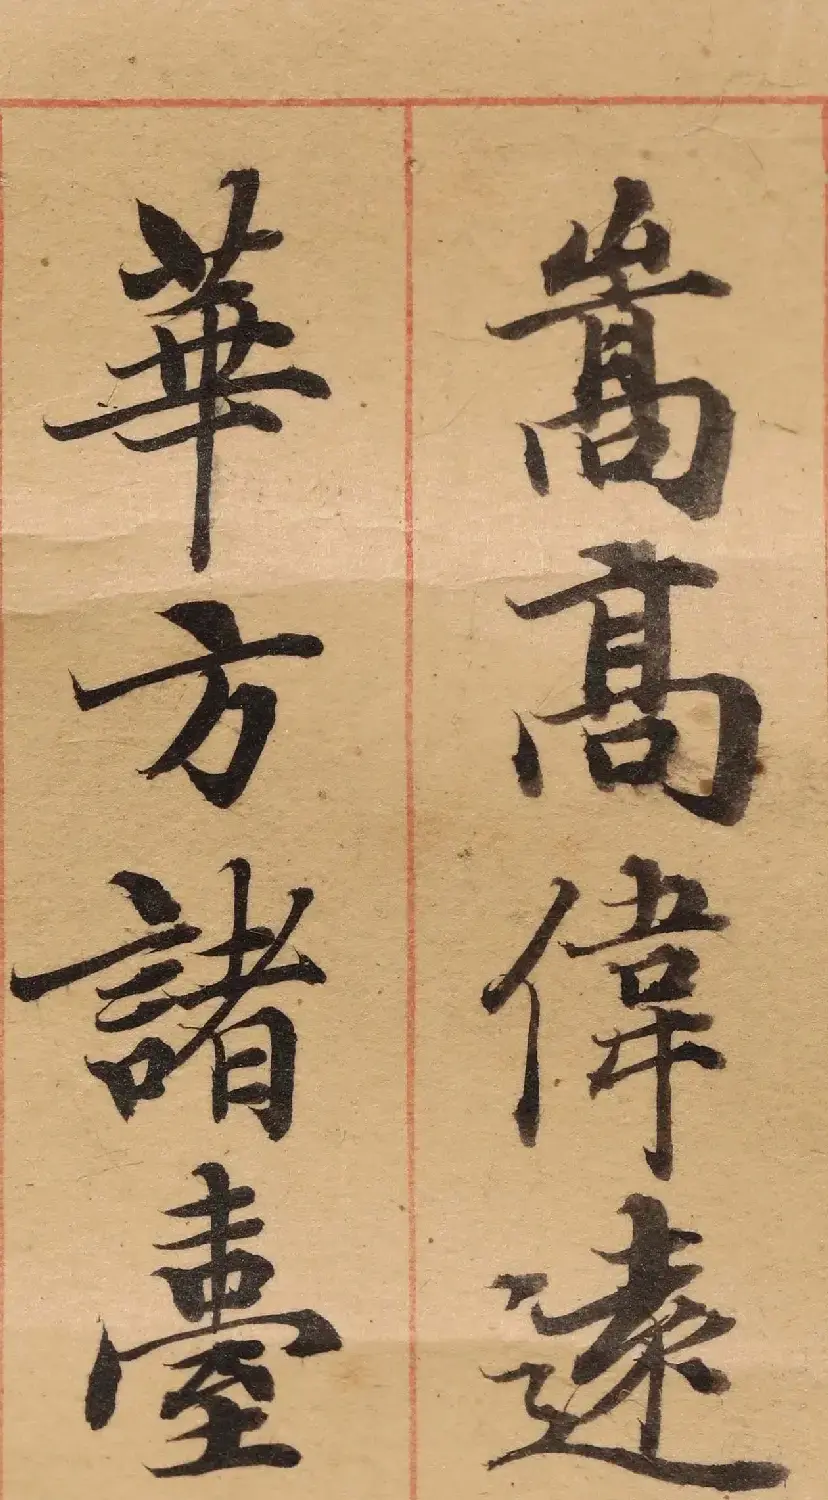 嵩高偉遠
華方諸臺